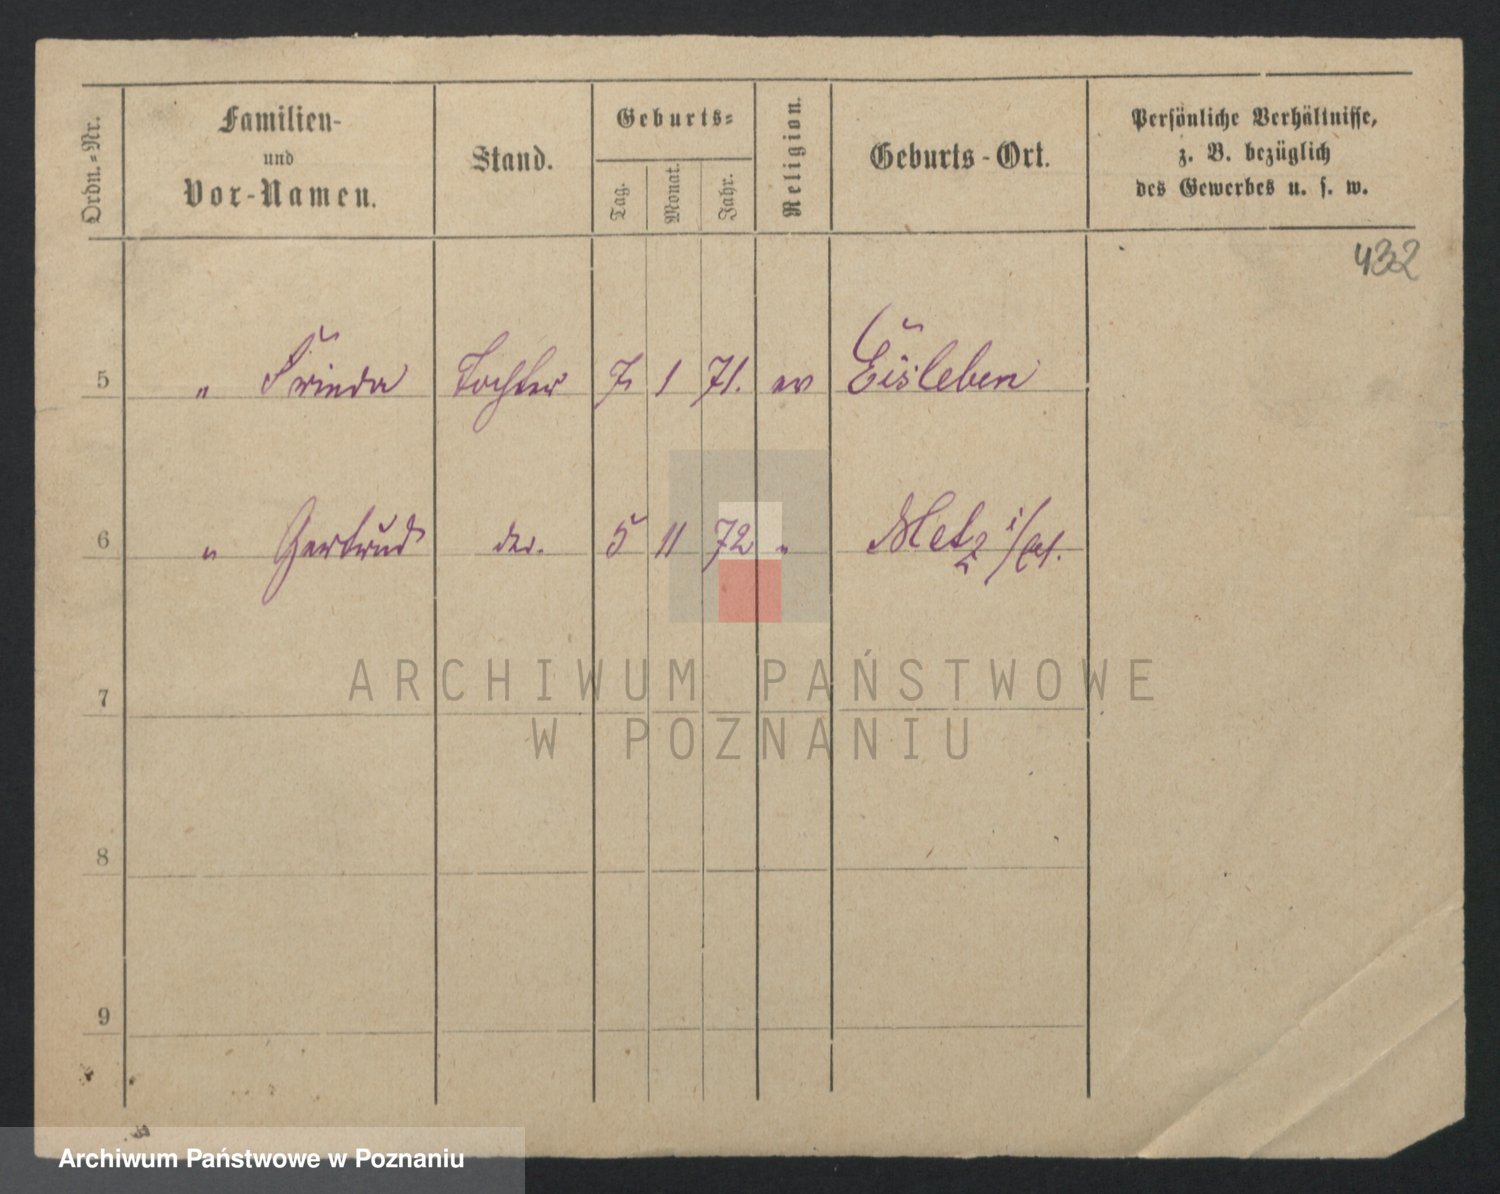 Ordn.=Nr.
Familien-
und
Vor-Namen.
Stand.
Geburts=
Tag.
Monat.
Jahr.
Religion.
Geburts-Ort.
Persönliche Verhältnisse,
z. B. bezüglich
des Gewerbes u. s. w.
432
5 " Frieda Tochter 7 1 71. ev Eisleben
6 " Gertrud 5 11 72 " Metz
7
8
9
ARCHIWUM PAŃSTWOWE
W POZNANIU
Archiwum Państwowe w Poznaniu